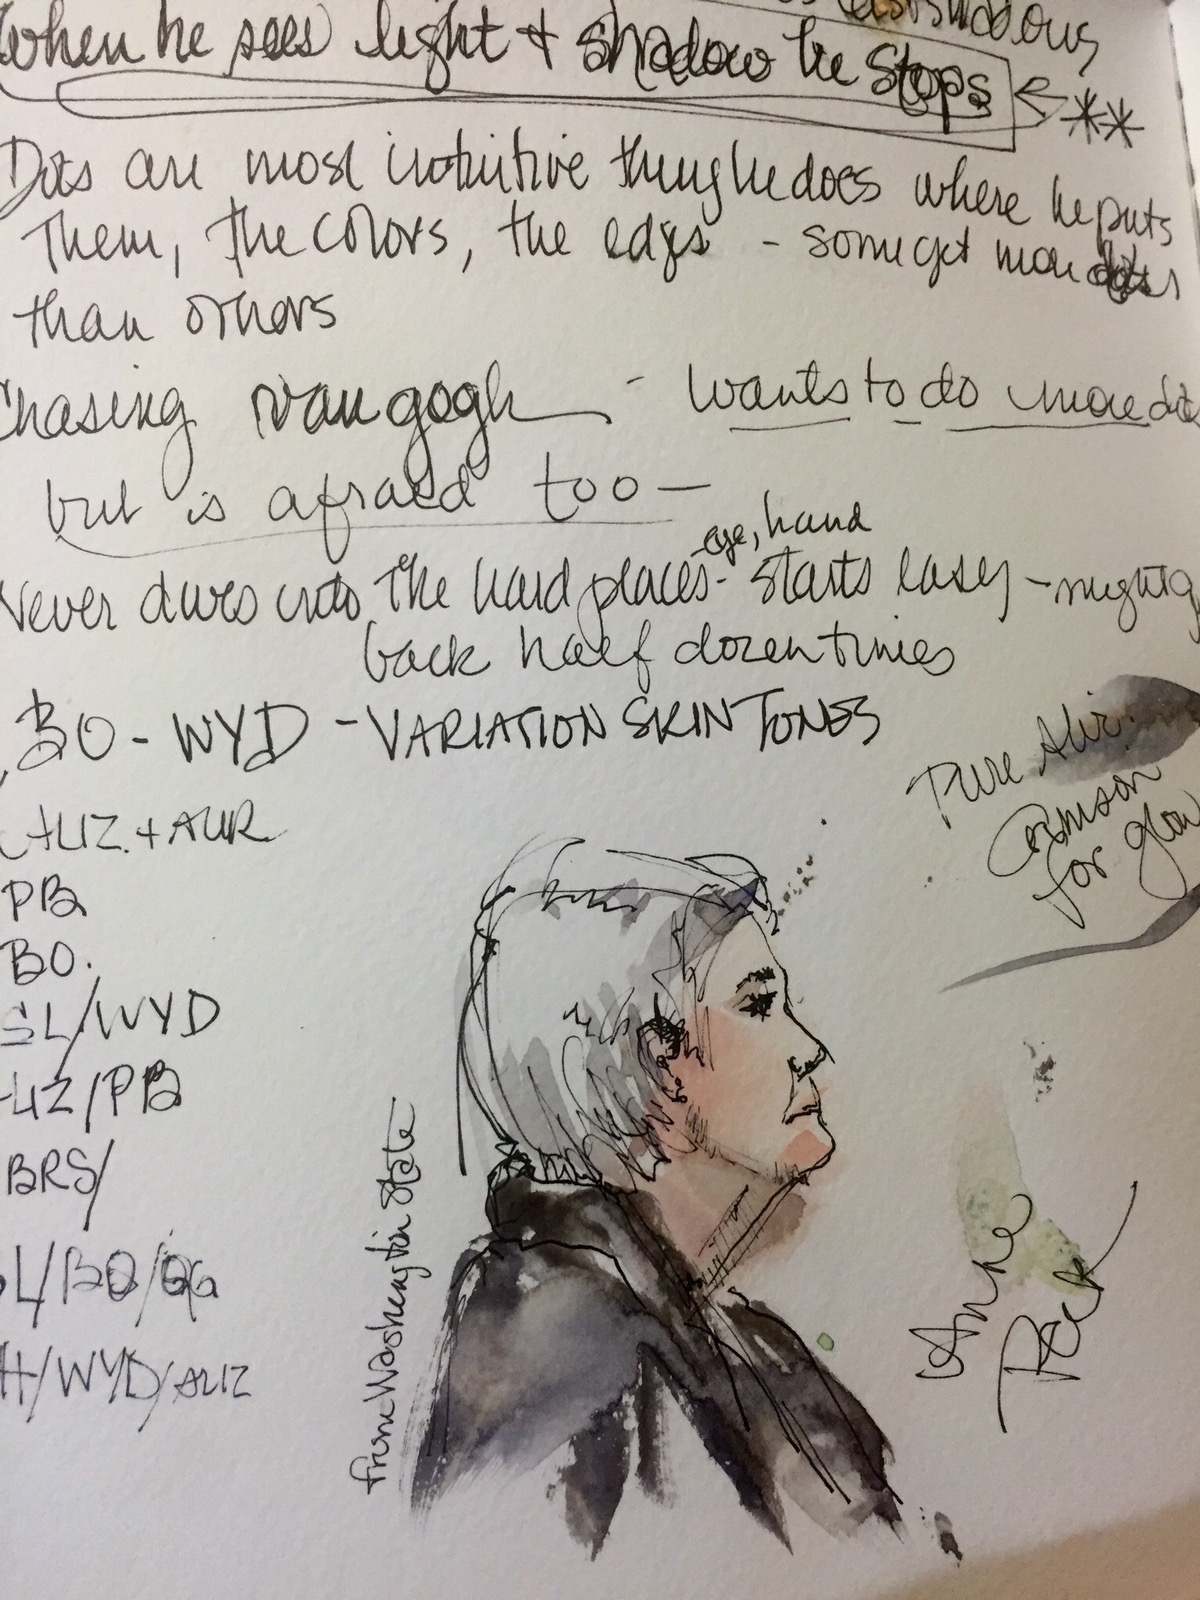 When he sees light & shadow he stops
←**
Dots are most intuitive thing he does where he puts
Them, The colors, the edges - some get more
than others
Chasing van gogh - wants to do more
but is afraid too —
-eye, hand
Never dives into The hard places - starts easy -
back half dozen times
BO - WYD - VARIATION SKIN TONES
Pure Aliz.
Crimson
for glow
ALIZ. + AUR
PB
BO.
SL/WYD
ALIZ/PB
BRS/
SL/BO/QG
H/WYD/ALIZ
From Washington State
Anne